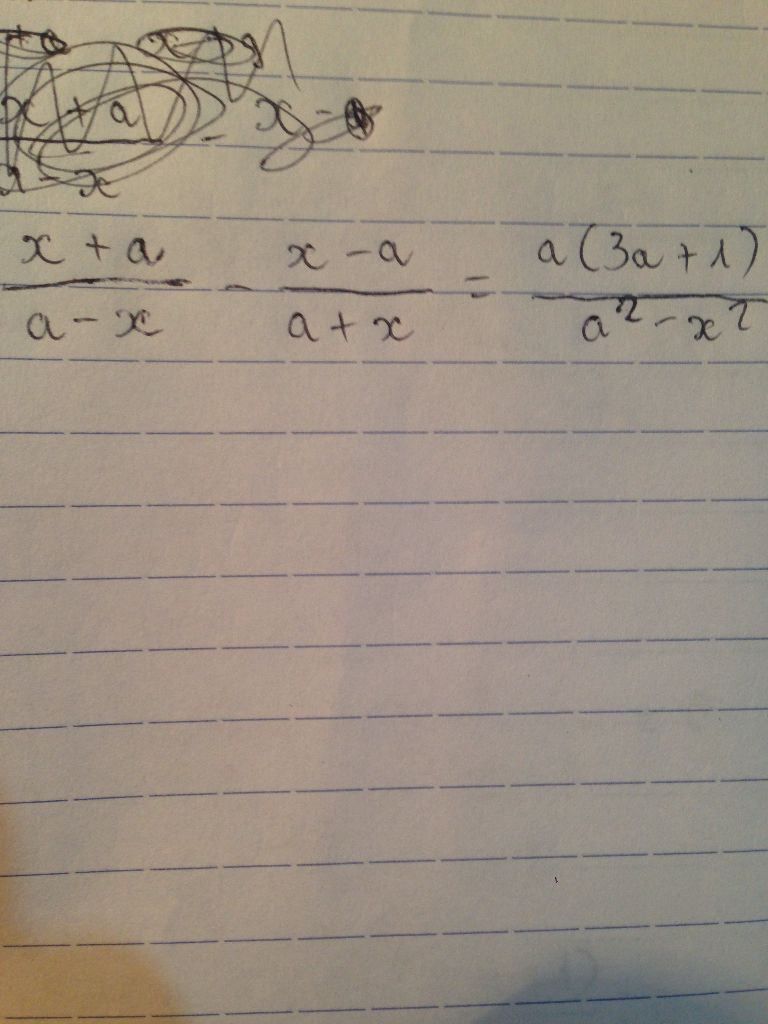 x + a
x -
x + a / a - x - x - a / a + x = a(3a + 1) / a² - x²